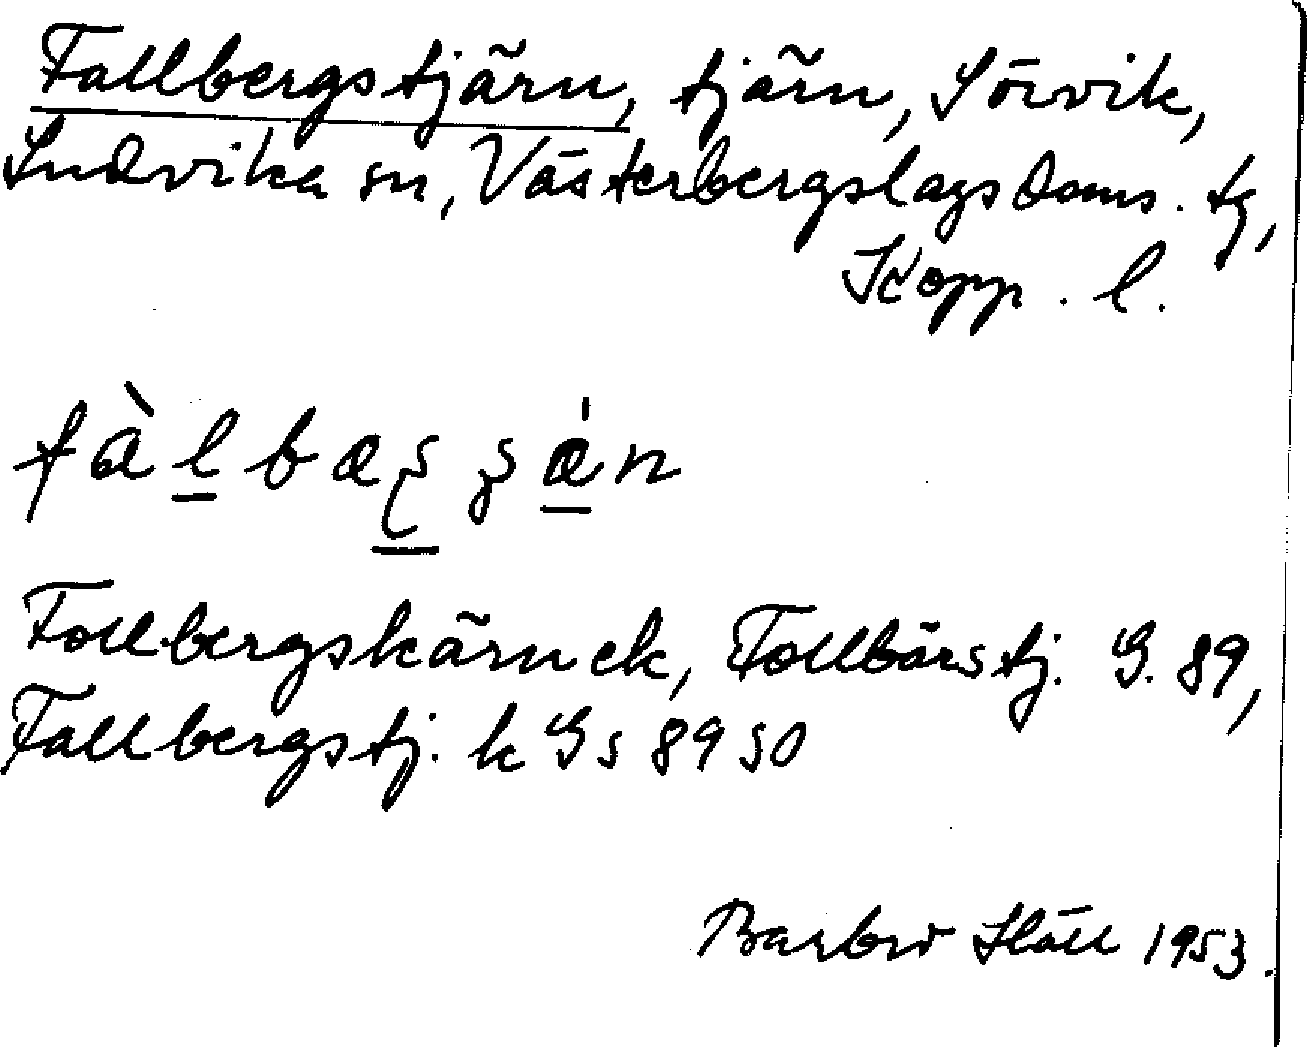 Fallbergstjärn, tjärn, Sörvik,
Ludvika sn, Västerbergslags doms. tg,
Kopp. l.
Follbergskärnek, Follbärstj. G. 89,
Fallbergstj. k Gs 89 50
Barbro Häll 1953.